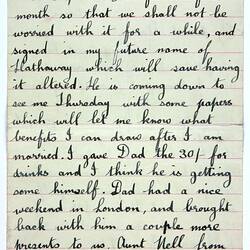 month so that we shall not be
worried with it for a while, and
signed in my future name of
Hathaway which will save having
it altered. He is coming down to
see me Thursday with some papers
which will let me know what
benefits I can draw after I am
married. I gave Dad the 30/- for
drinks and I think he is getting
some himself. Dad had a nice
weekend in London, and brought
back with him a couple more
presents to us, Aunt Nell from